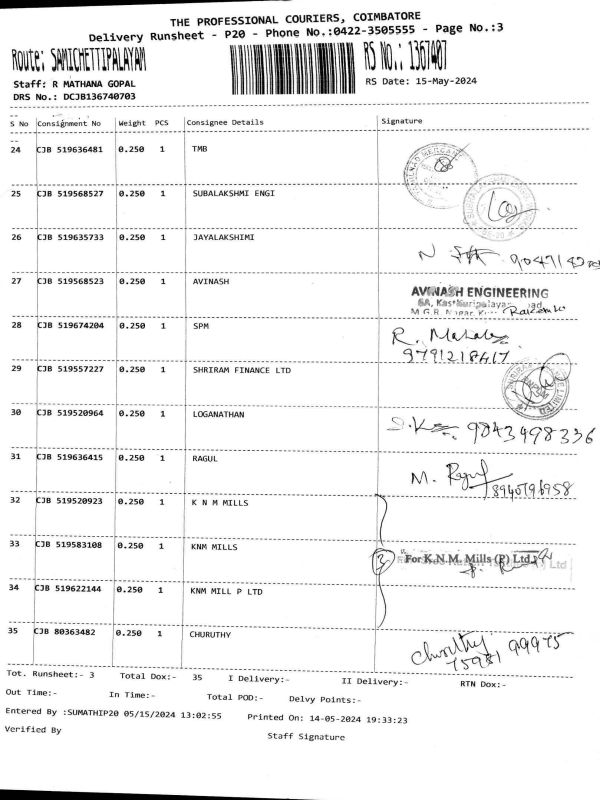 THE PROFESSIONAL COURIERS, COIMBATORE
Delivery Runsheet - P20 - Phone No.:0422-3505555 - Page No.:3
Route: SAMICHETTIPALAYAM
RS No.: 1367407
Staff: R MATHANA GOPAL
RS Date: 15-May-2024
DRS No.: DCJB136740703
S No Consignment No Weight PCS Consignee Details Signature
24 CJB 519636481 0.250 1 TMB
25 CJB 519568527 0.250 1 SUBALAKSHMI ENGI
26 CJB 519635733 0.250 1 JAYALAKSHIMI
27 CJB 519568523 0.250 1 AVINASH AVINASH ENGINEERING
28 CJB 519674204 0.250 1 SPM
9791218417
29 CJB 519557227 0.250 1 SHRIRAM FINANCE LTD
30 CJB 519520964 0.250 1 LOGANATHAN 9843498336
31 CJB 519636415 0.250 1 RAGUL M. Ragul
8940796958
32 CJB 519520923 0.250 1 K N M MILLS
33 CJB 519583108 0.250 1 KNM MILLS 3 For K.N.M. Mills (P) Ltd.,
34 CJB 519622144 0.250 1 KNM MILL P LTD
35 CJB 80363482 0.250 1 CHURUTHY Churuthy
75981 99975
Tot. Runsheet:- 3 Total Dox:- 35 I Delivery:- II Delivery:- RTN Dox:-
Out Time:- In Time:- Total POD:- Delvy Points:-
Entered By :SUMATHIP20 05/15/2024 13:02:55 Printed On: 14-05-2024 19:33:23
Verified By Staff Signature